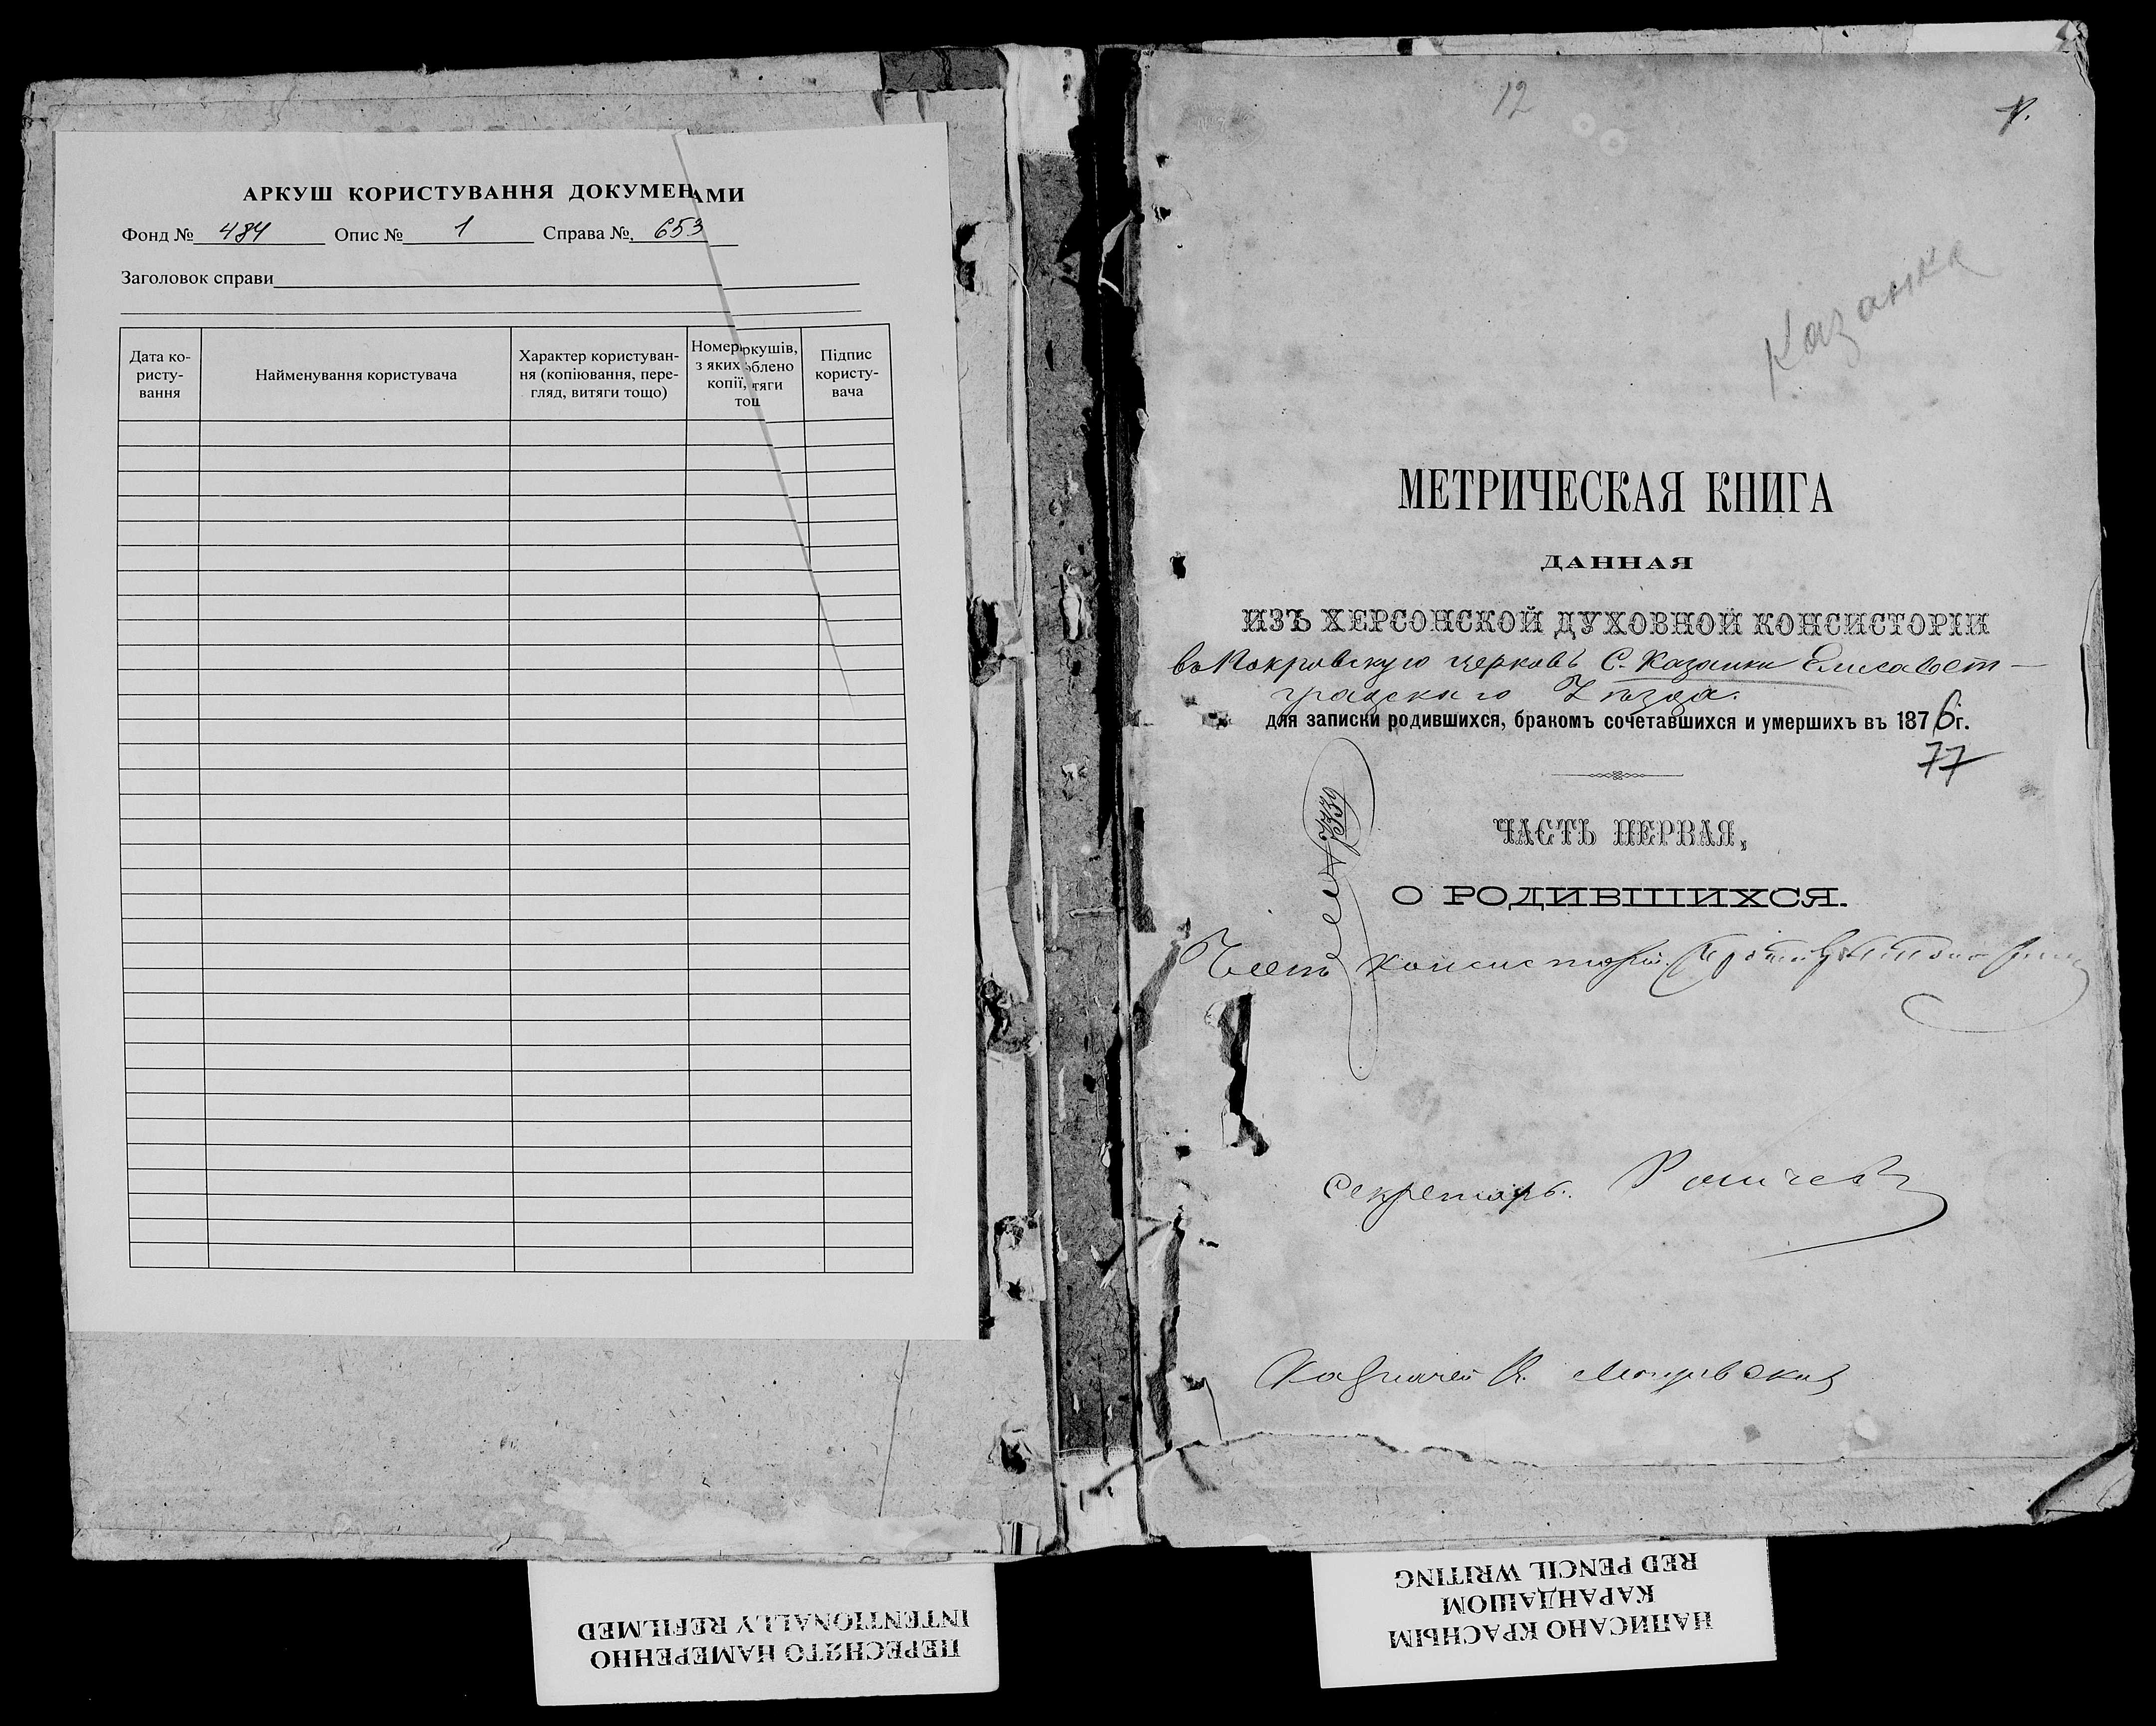 АРКУШ КОРИСТУВАННЯ ДОКУМЕН АМИ
Фонд № 484 Опис № 1 Справа № 653
Заголовок справи
Дата ко-
ристу-
вання
Найменування користувача
Характер користуван-
ня (копіювання, пере-
гляд, витяги тощо)
Номер ркушів,
з яких облено
копії, тяги
тощ
Підпис
користу-
вача
12
1.
Казанка
МЕТРИЧЕСКАЯ КНИГА
ДАННАЯ
ИЗЪ ХЕРСОНСКОЙ ДУХОВНОЙ КОНСИСТОРІИ
въ Покровскую церковь С. Казанки Елисавет-
градскаго Уѣзда.
для записки родившихся, бракомъ сочетавшихся и умершихъ въ 1876 г.
77
ЧАСТЬ ПЕРВАЯ,
О РОДИВШИХСЯ.
Членъ Консисторіи
Секретарь
Казначей
ПЕРЕСНЯТО НАМЕРЕННО
INTENTIONALLY REFILMED
НАПИСАНО КРАСНЫМ
КАРАНДАШОМ
RED PENCIL WRITING